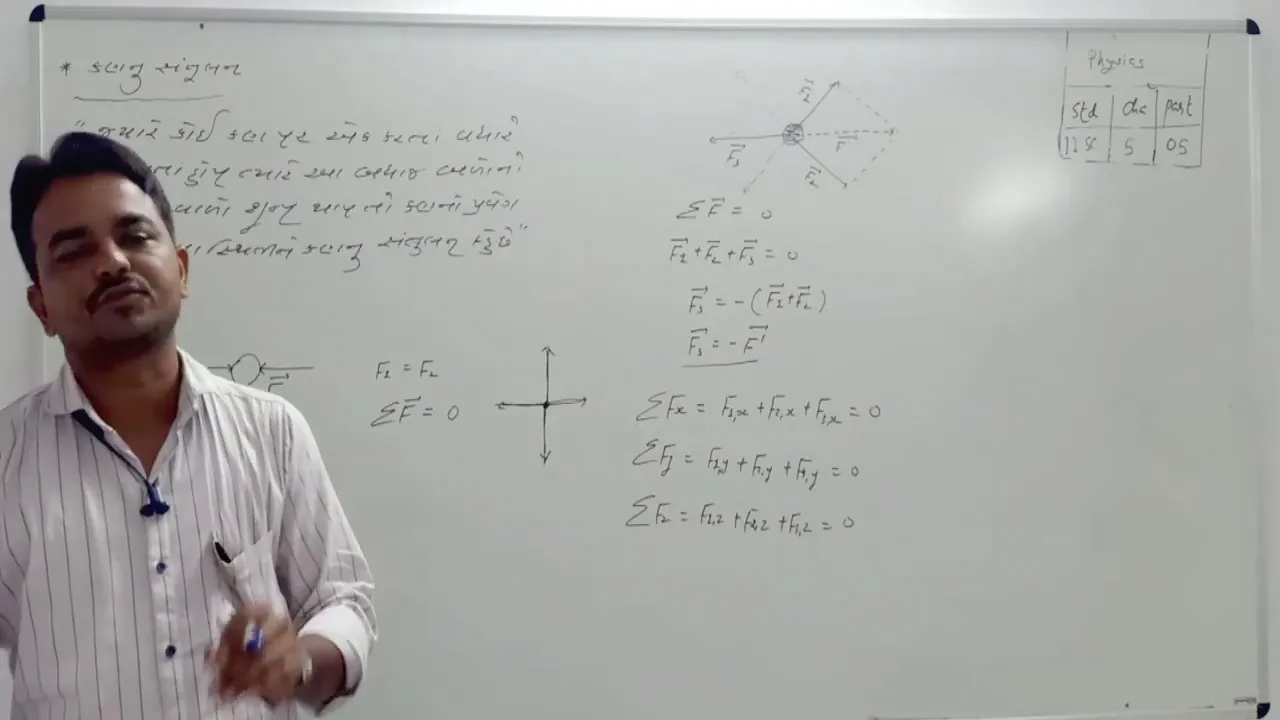 * કણનું સંતુલન
"જ્યારે કોઈ કણ પર એક કરતાં વધારે
હોય ત્યારે આ બધાજ બળોનો
શૂન્ય થાય તો કણનો પ્રવેગ
સ્થિતિને કણનું સંતુલન કહે છે"
F₁ = F₂
ΣF⃗ = 0
F⃗₂
F⃗₃
ΣF⃗ = 0
F⃗₁ + F⃗₂ + F⃗₃ = 0
F⃗₃ = - (F⃗₁ + F⃗₂)
F⃗₃ = - F⃗'
ΣFx = F₁,x + F₂,x + F₃,x = 0
ΣFy = F₁,y + F₂,y + F₃,y = 0
ΣFz = F₁,z + F₂,z + F₃,z = 0
Physics
Std | ch | part
11 | 5 | 05